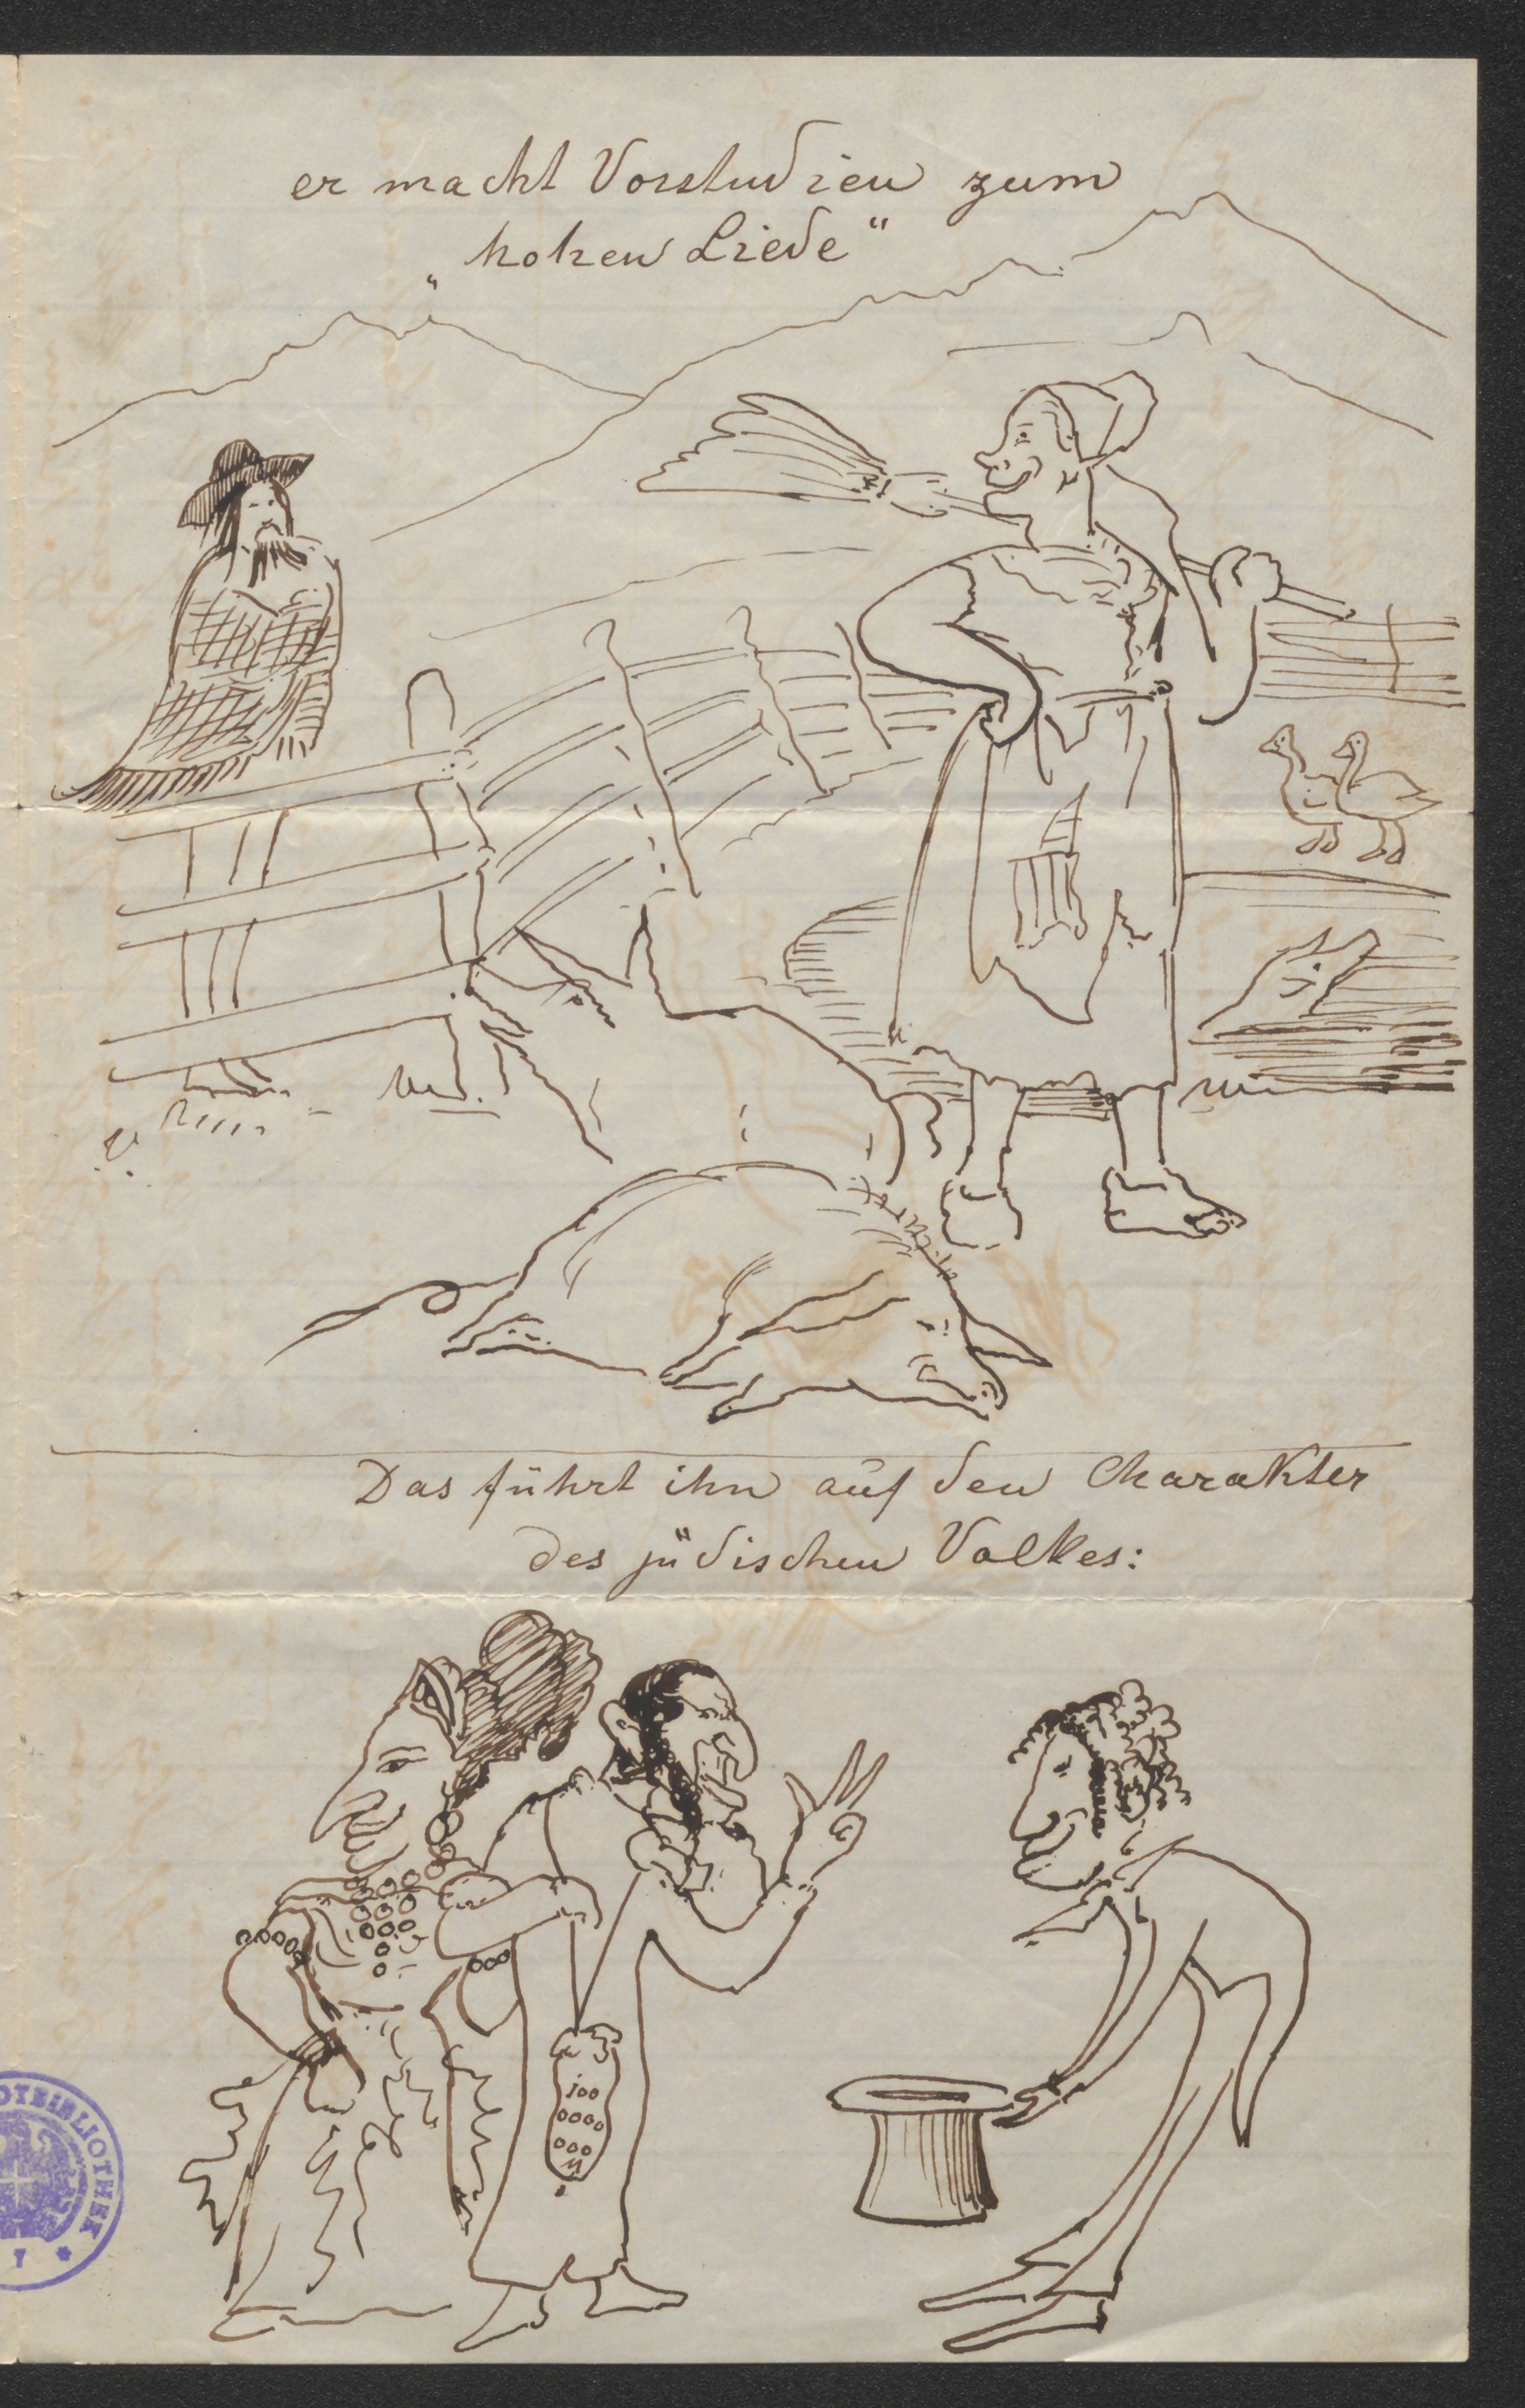 er macht Vorstudien zum
„hohen Liede"
Das führt ihn auf den Charakter
des jüdischen Volkes:
100
0000
000